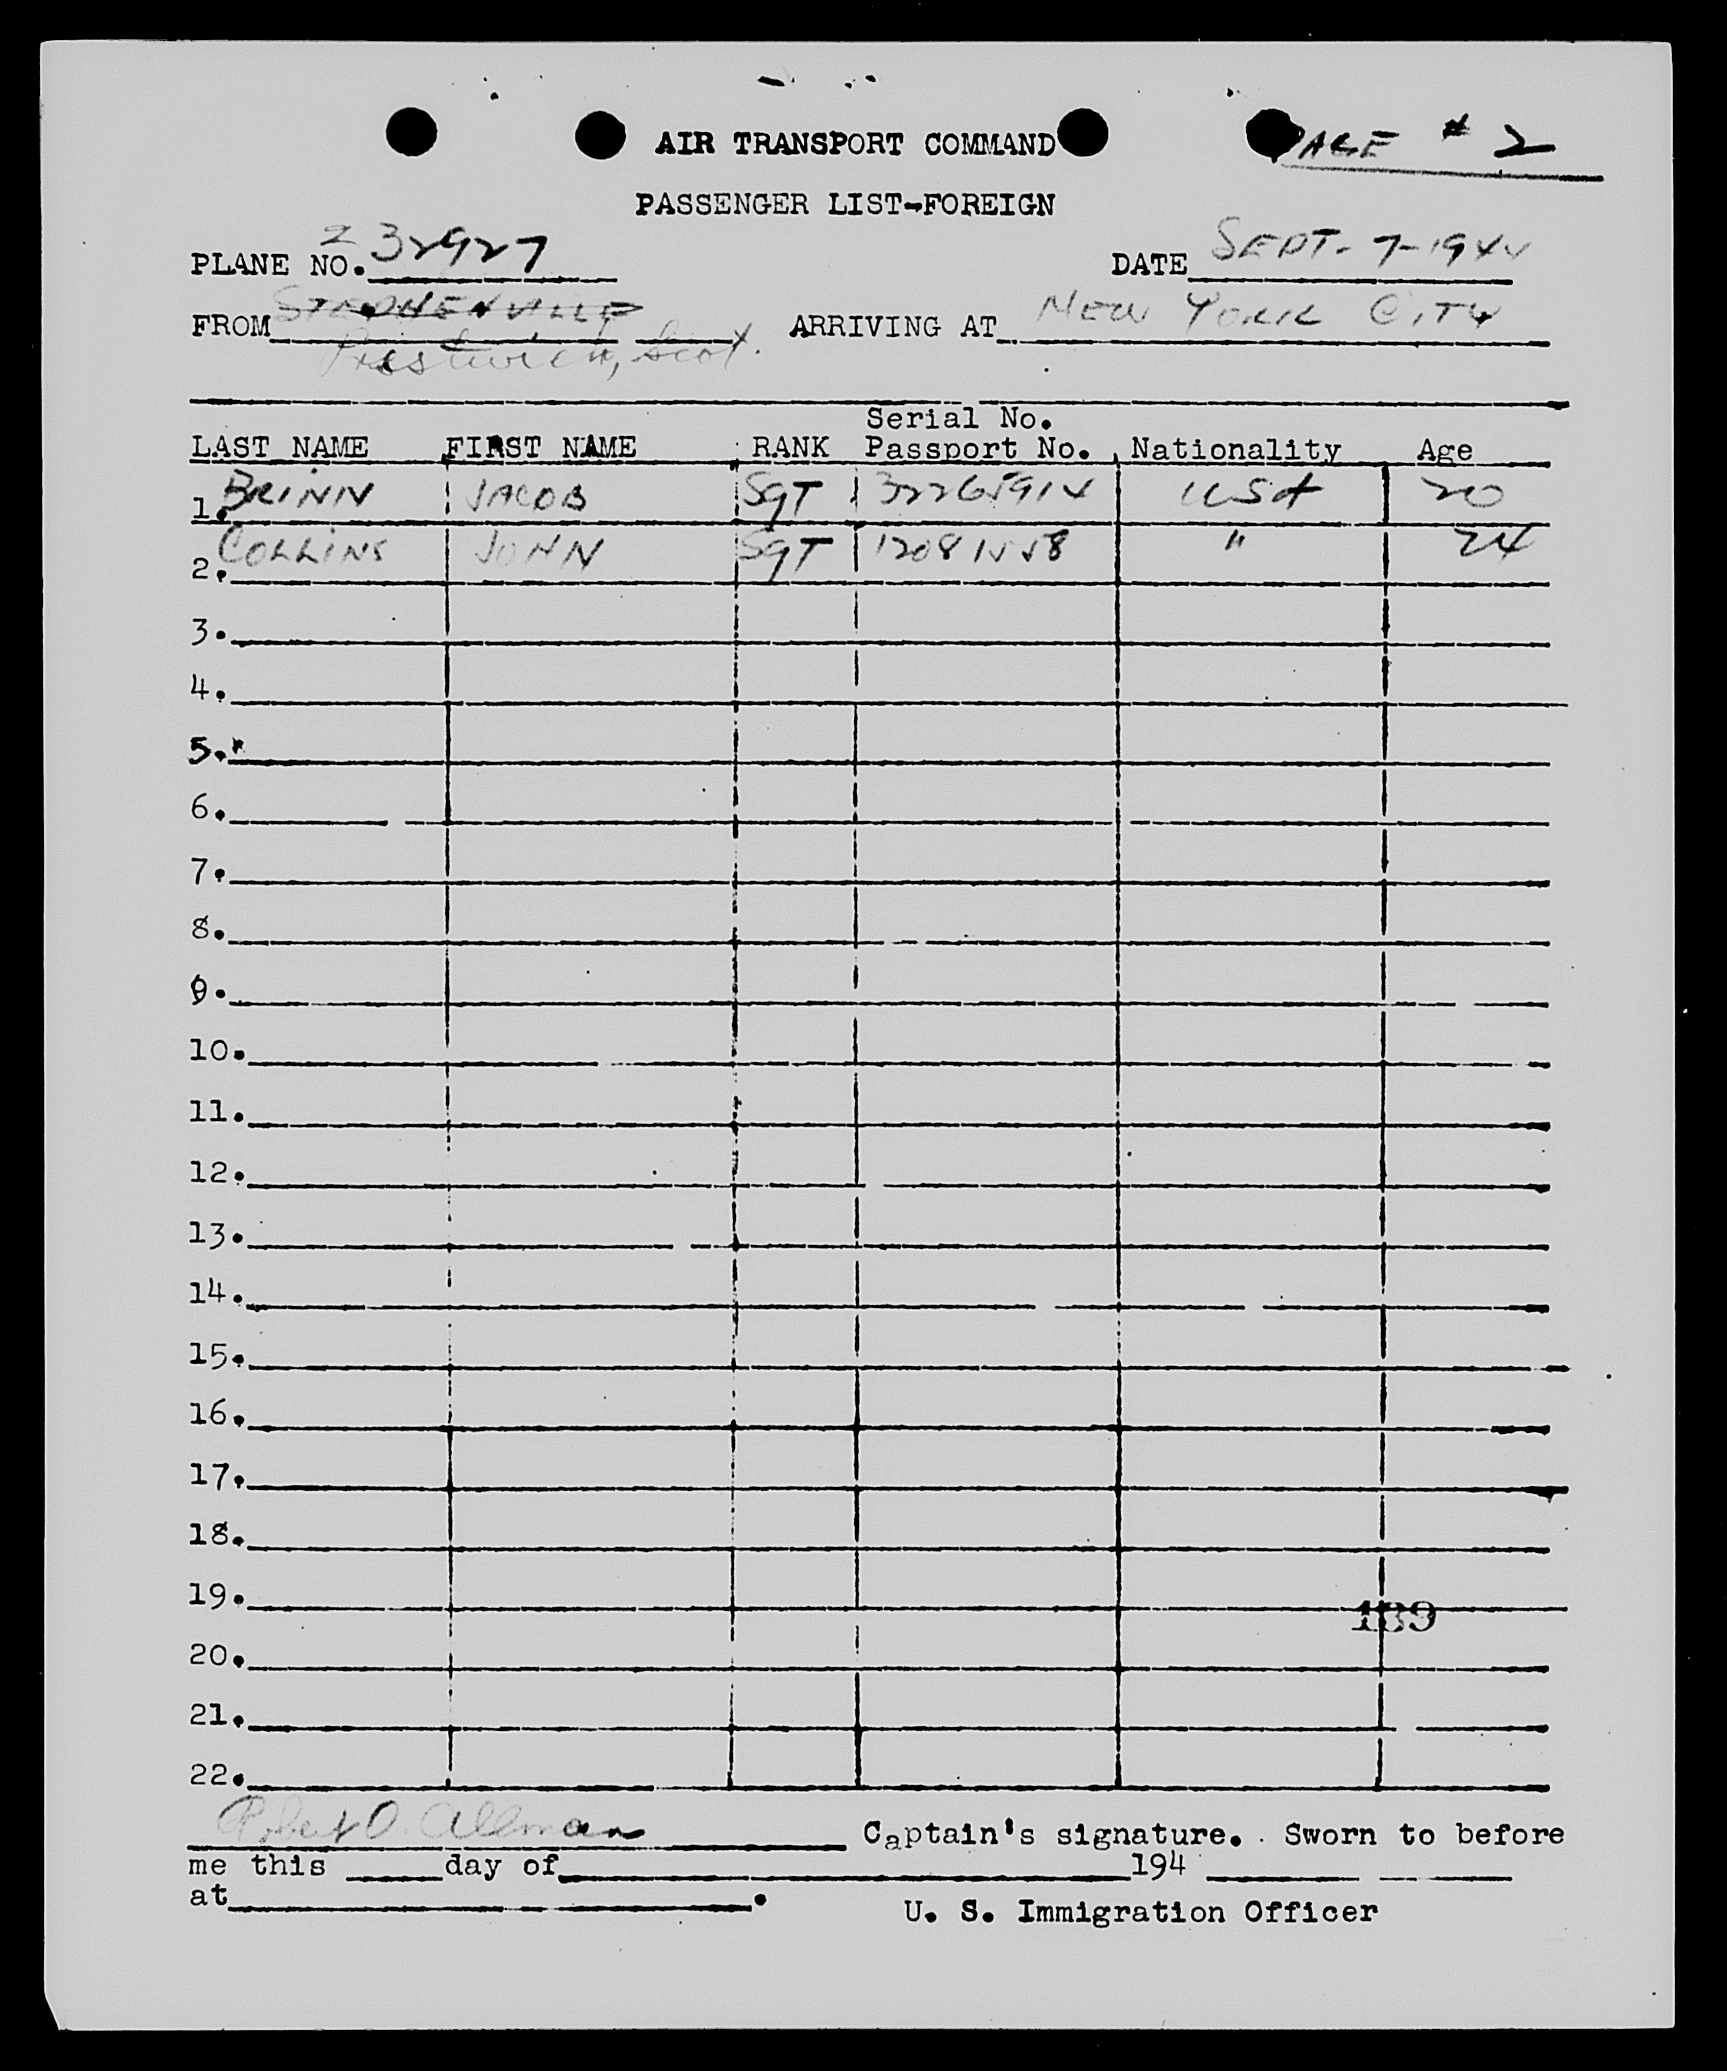 AIR TRANSPORT COMMAND
PAGE # 2
PASSENGER LIST-FOREIGN
PLANE NO. 232927 DATE SEPT. 7-1944
FROM STEPHENVILLE ARRIVING AT NEW YORK CITY
Prestwick, Scot.
Serial No.
LAST NAME FIRST NAME RANK Passport No. Nationality Age
1. BRINN JACOB SGT 32265914 USA 20
2. COLLINS JOHN SGT 12081558 " 24
3.
4.
5.
6.
7.
8.
9.
10.
11.
12.
13.
14.
15.
16.
17.
18.
19.
139
20.
21.
22.
Robert O. Allman Captain's signature. Sworn to before
me this day of 194
at .
U. S. Immigration Officer